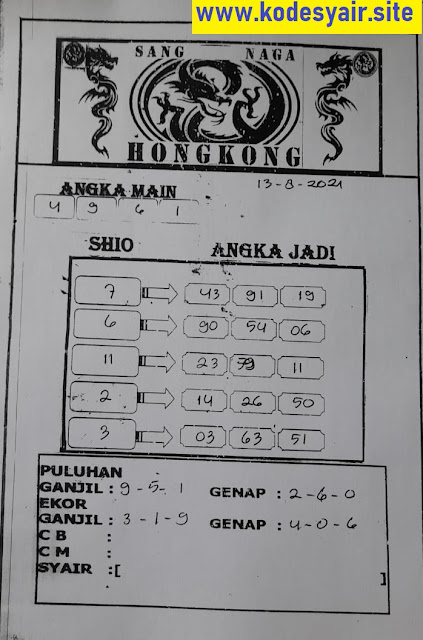 www.kodesyair.site
SANG NAGA
HONGKONG
13-8-2021
ANGKA MAIN
4 9 6 1
SHIO ANGKA JADI
7 43 91 19
6 90 54 06
11 23 79 11
2 14 26 50
3 03 63 51
PULUHAN
GANJIL : 9-5-1 GENAP : 2-6-0
EKOR
GANJIL : 3-1-9 GENAP : 4-0-6
C B :
C M :
SYAIR :[
]